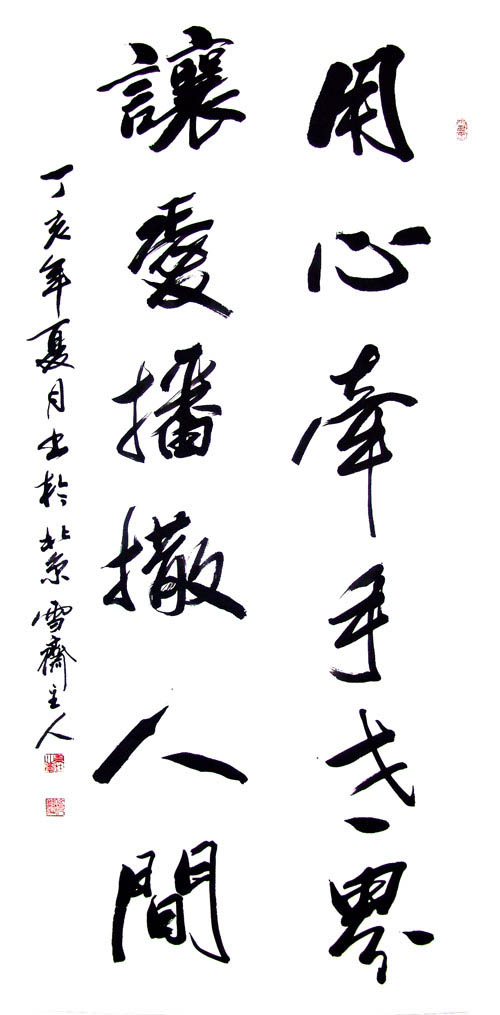 用心牵手世界
讓愛播撒人間
丁亥年夏月书於北京雪齋主人